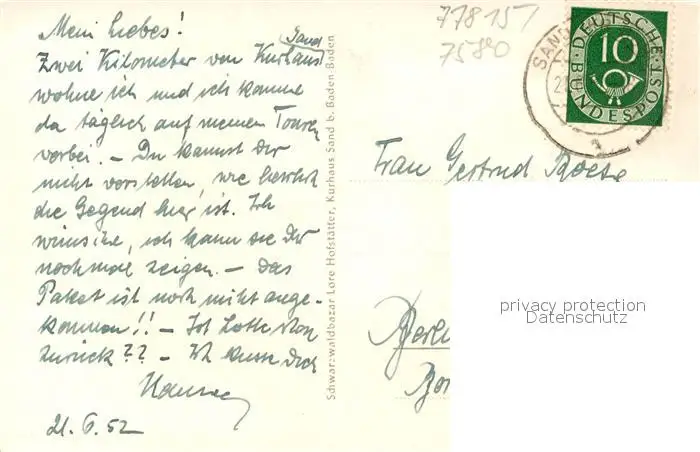 Mein Liebes!
Sand
Zwei Kilometer vom Kurhaus
wohne ich und ich komme
da täglich auf meinen Touren
vorbei. – Du kannst Dir
nicht vorstellen, wie herrlich
die Gegend hier ist. Ich
wünsche, ich kann sie Dir
nochmal zeigen. – Das
Paket ist noch nicht ange-
kommen!! – Ist Lotte schon
zurück?? – Ich küsse Dich
21.6.52
Schwarzwaldbazar Lore Hofstätter, Kurhaus Sand b. Baden Baden
778151
7580
SAND
DEUTSCHE BUNDESPOST
10
Frau Gertrud
privacy protection
Datenschutz